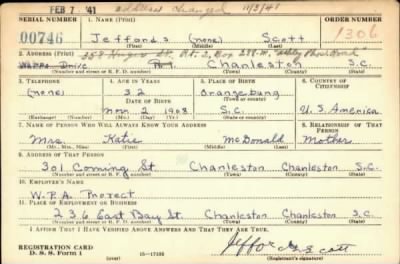 FEB 7 '41 address changed 11/3/41
SERIAL NUMBER 1. NAME (Print) ORDER NUMBER
00746 Jeffords (none) Scott 1306
(First) (Middle) (Last)
358 Huger St. Rt. 2, Box
2. ADDRESS (Print)
Wappo Drive Rt. 1 Charleston S.C.
(Number and street or R. F. D. number) (Town) (County) (State)
3. TELEPHONE 4. AGE IN YEARS 5. PLACE OF BIRTH 6. COUNTRY OF CITIZENSHIP
(none) 32 Orangeburg
DATE OF BIRTH (Town or county)
Nov 2 1908 S.C. U.S. America
(Exchange) (Number) (Mo.) (Day) (Yr.) (State or country)
7. NAME OF PERSON WHO WILL ALWAYS KNOW YOUR ADDRESS 8. RELATIONSHIP OF THAT PERSON
Mrs. Katie McDonald Mother
(Mr., Mrs., Miss) (First) (Middle) (Last)
9. ADDRESS OF THAT PERSON
301 Coming St Charleston Charleston S.C.
(Number and street or R. F. D. number) (Town) (County) (State)
10. EMPLOYER'S NAME
W.P.A Project
11. PLACE OF EMPLOYMENT OR BUSINESS
236 East Bay St. Charleston Charleston S.C.
(Number and street or R. F. D. number) (Town) (County) (State)
I AFFIRM THAT I HAVE VERIFIED ABOVE ANSWERS AND THAT THEY ARE TRUE.
REGISTRATION CARD
D. S. S. Form 1 16—17105 Jeffords Scott
(Registrant's signature)